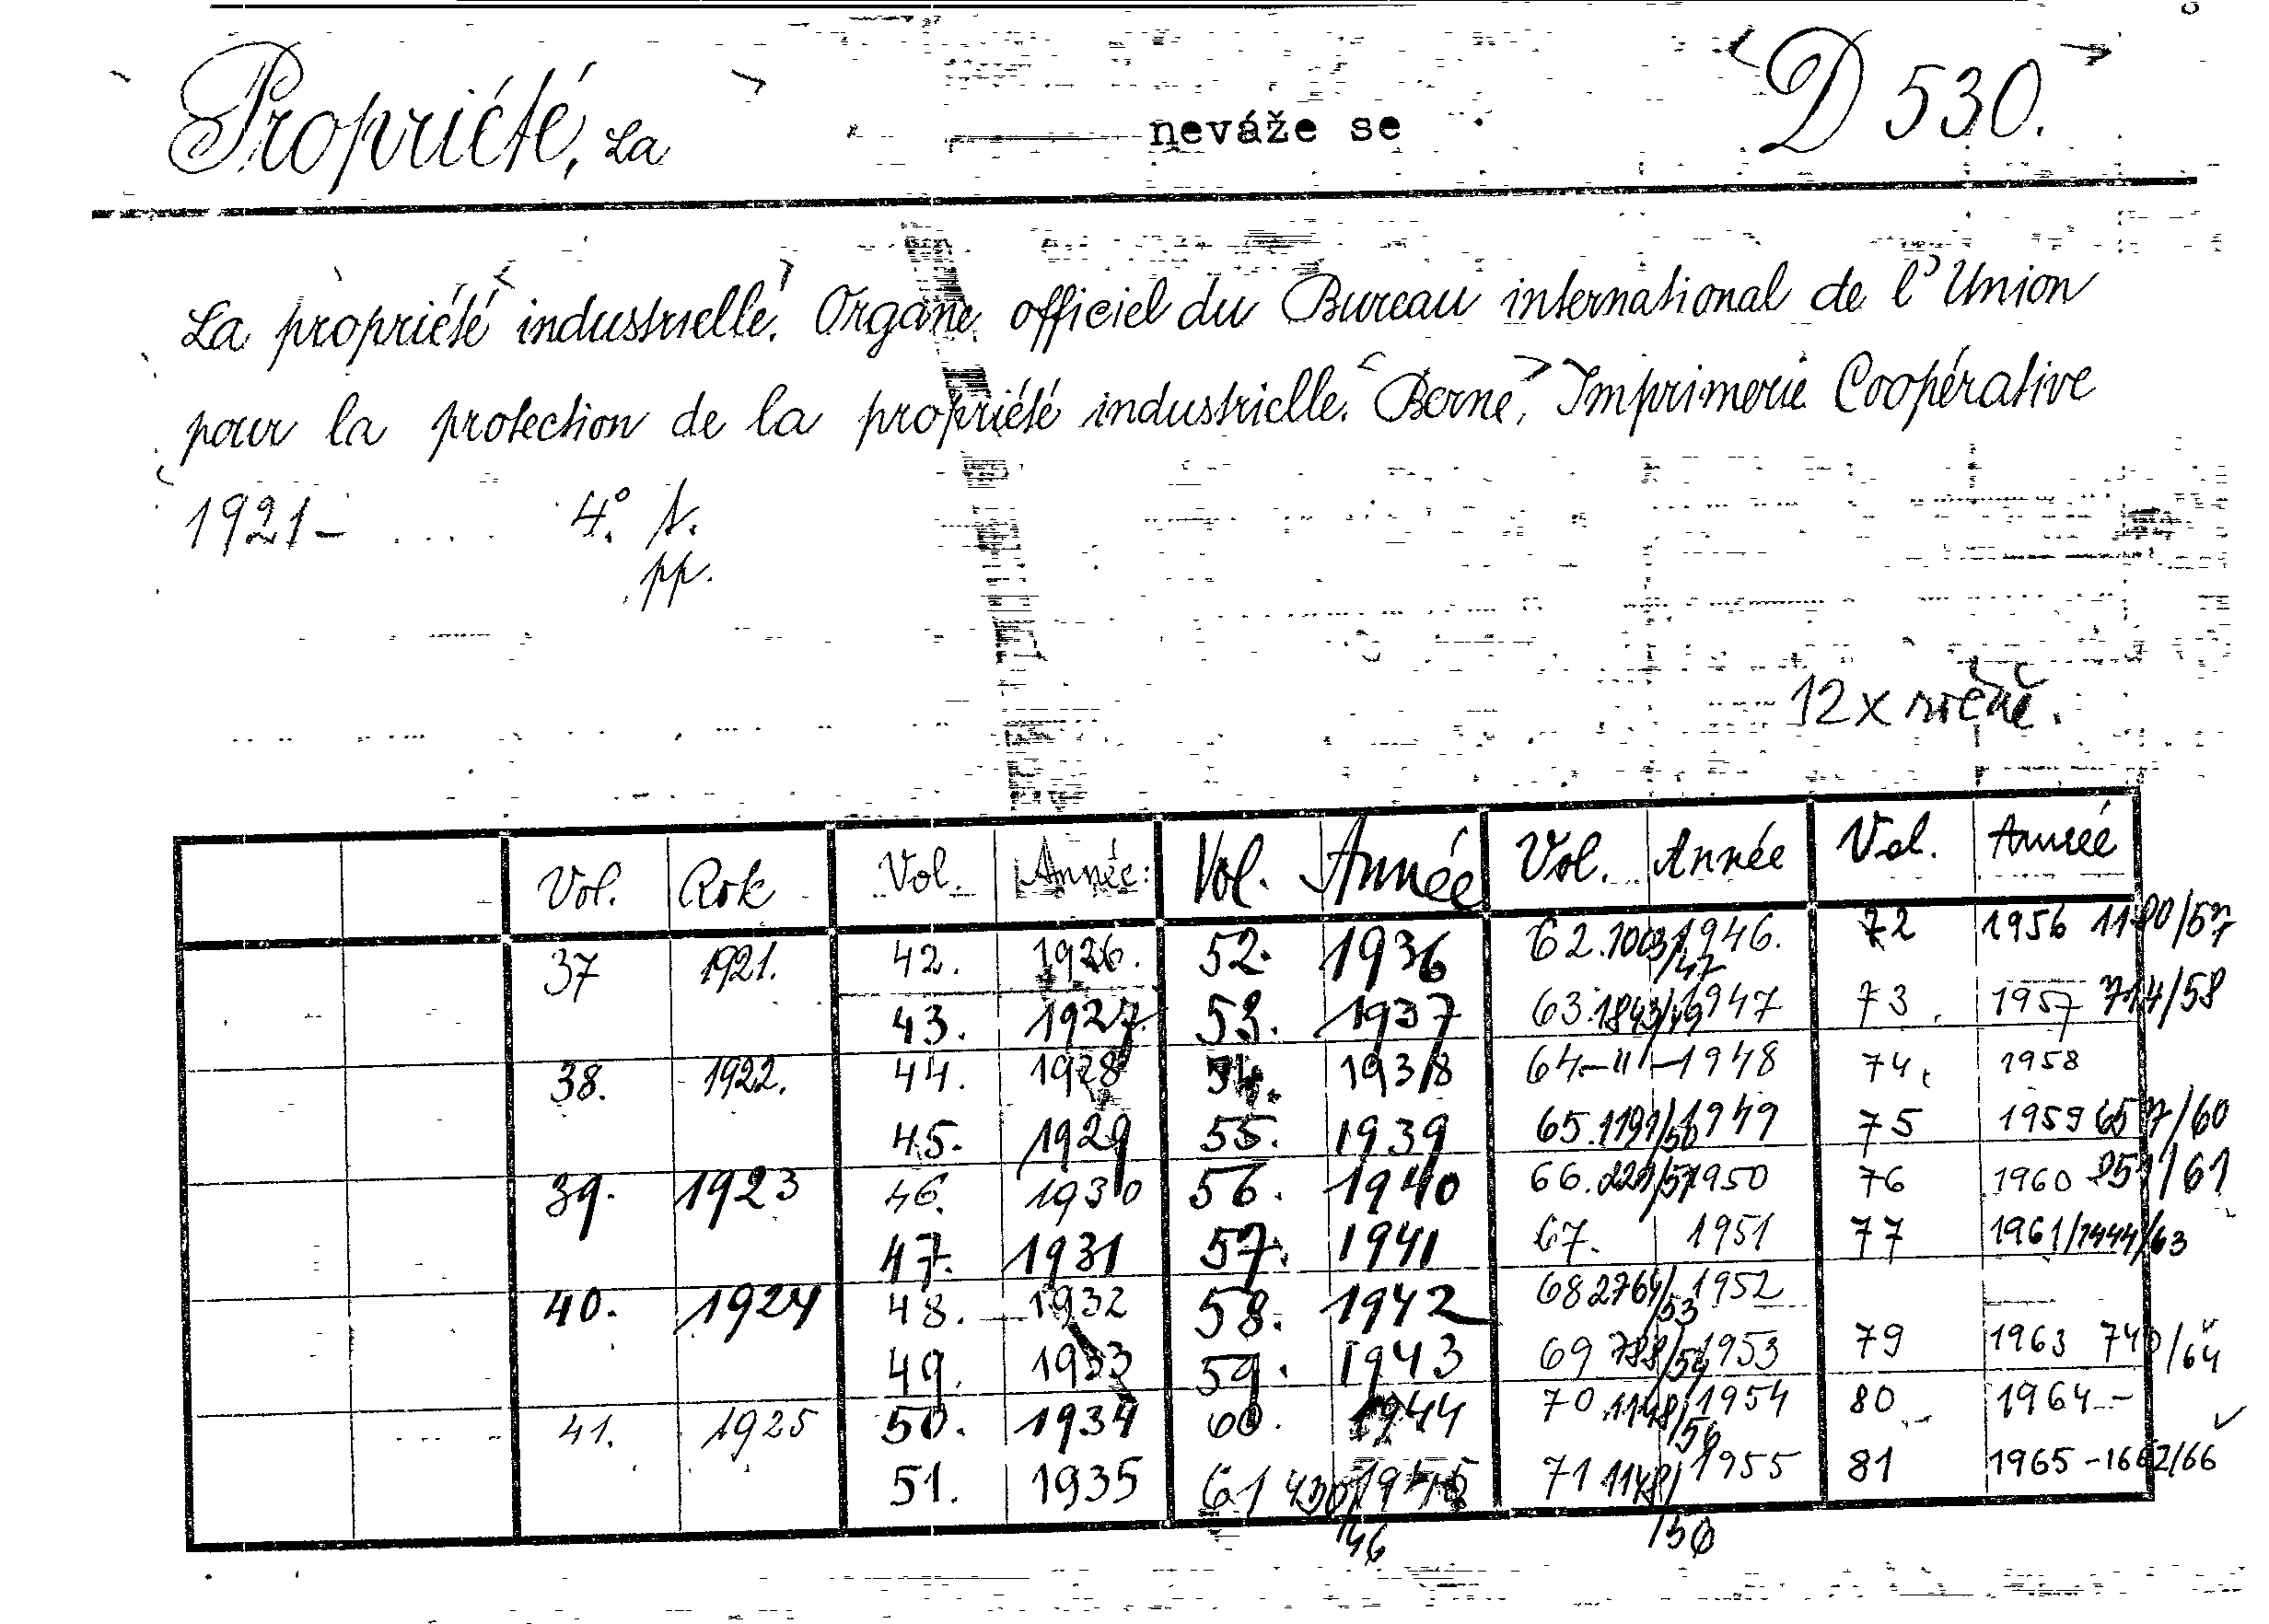 Propriété, La neváže se D 530.
La propriété industrielle. Organe officiel du Bureau international de l'Union
pour la protection de la propriété industrielle. Berne, Imprimerie Coopérative
1921- .... 4°.
pp.
12 x ročně.
Vol. Rok Vol. Année Vol. Année Vol. Année Vol. Année
37 1921. 42. 1926. 52. 1936 62. 1946. 72 1956
43. 1927. 53. 1937 63. 1947 73. 1957 714/58
38. 1922. 44. 1928 54. 1938 64-"-1948 74. 1958
45. 1929 55. 1939 65. 1949 75 1959 657/60
39. 1923 46. 1930 56. 1940 66. 1950 76 1960
47. 1931 57. 1941 67. 1951 77 1961
40. 1924 48. 1932 58. 1942 68 2764/53 1952
49. 1933 59. 1943 69 788/54 1953 79 1963 740/64
41. 1925 50. 1934 60. 1944 70 1148/56 1954 80 1964-
51. 1935 61 1945 71 1148/ 1955 81 1965 -1662/66